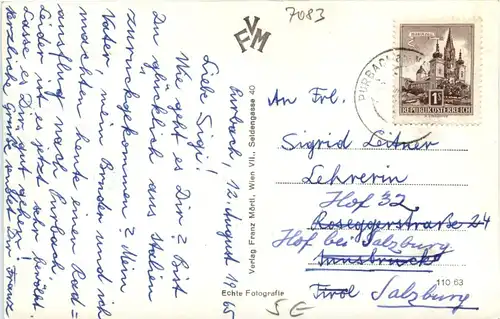 Purbach, 12. August 1965
Liebe Sigi!
Wie geht es Dir? Bist
Du glücklich aus Italien
zurückgekommen? Mein
Vater, mein Bruder und ich
machten heute einen Rad=
ausflug nach Purbach.
Leider ist es jetzt sehr bewölkt.
Lasse es Dir gut gehen!
Herzliche Grüße sendet Dir Franz
VFM
Verlag Franz Mörtl, Wien VII., Seidengasse 40
Echte Fotografie
7083
5E
MARIAZELL
1S
REPUBLIK ÖSTERREICH
PURBACH
An Frl.
Sigrid Leitner
Lehrerin
Hof 32
Roseggerstraße 24
Hof bei Salzburg
Innsbruck
Tirol Salzburg
110 63